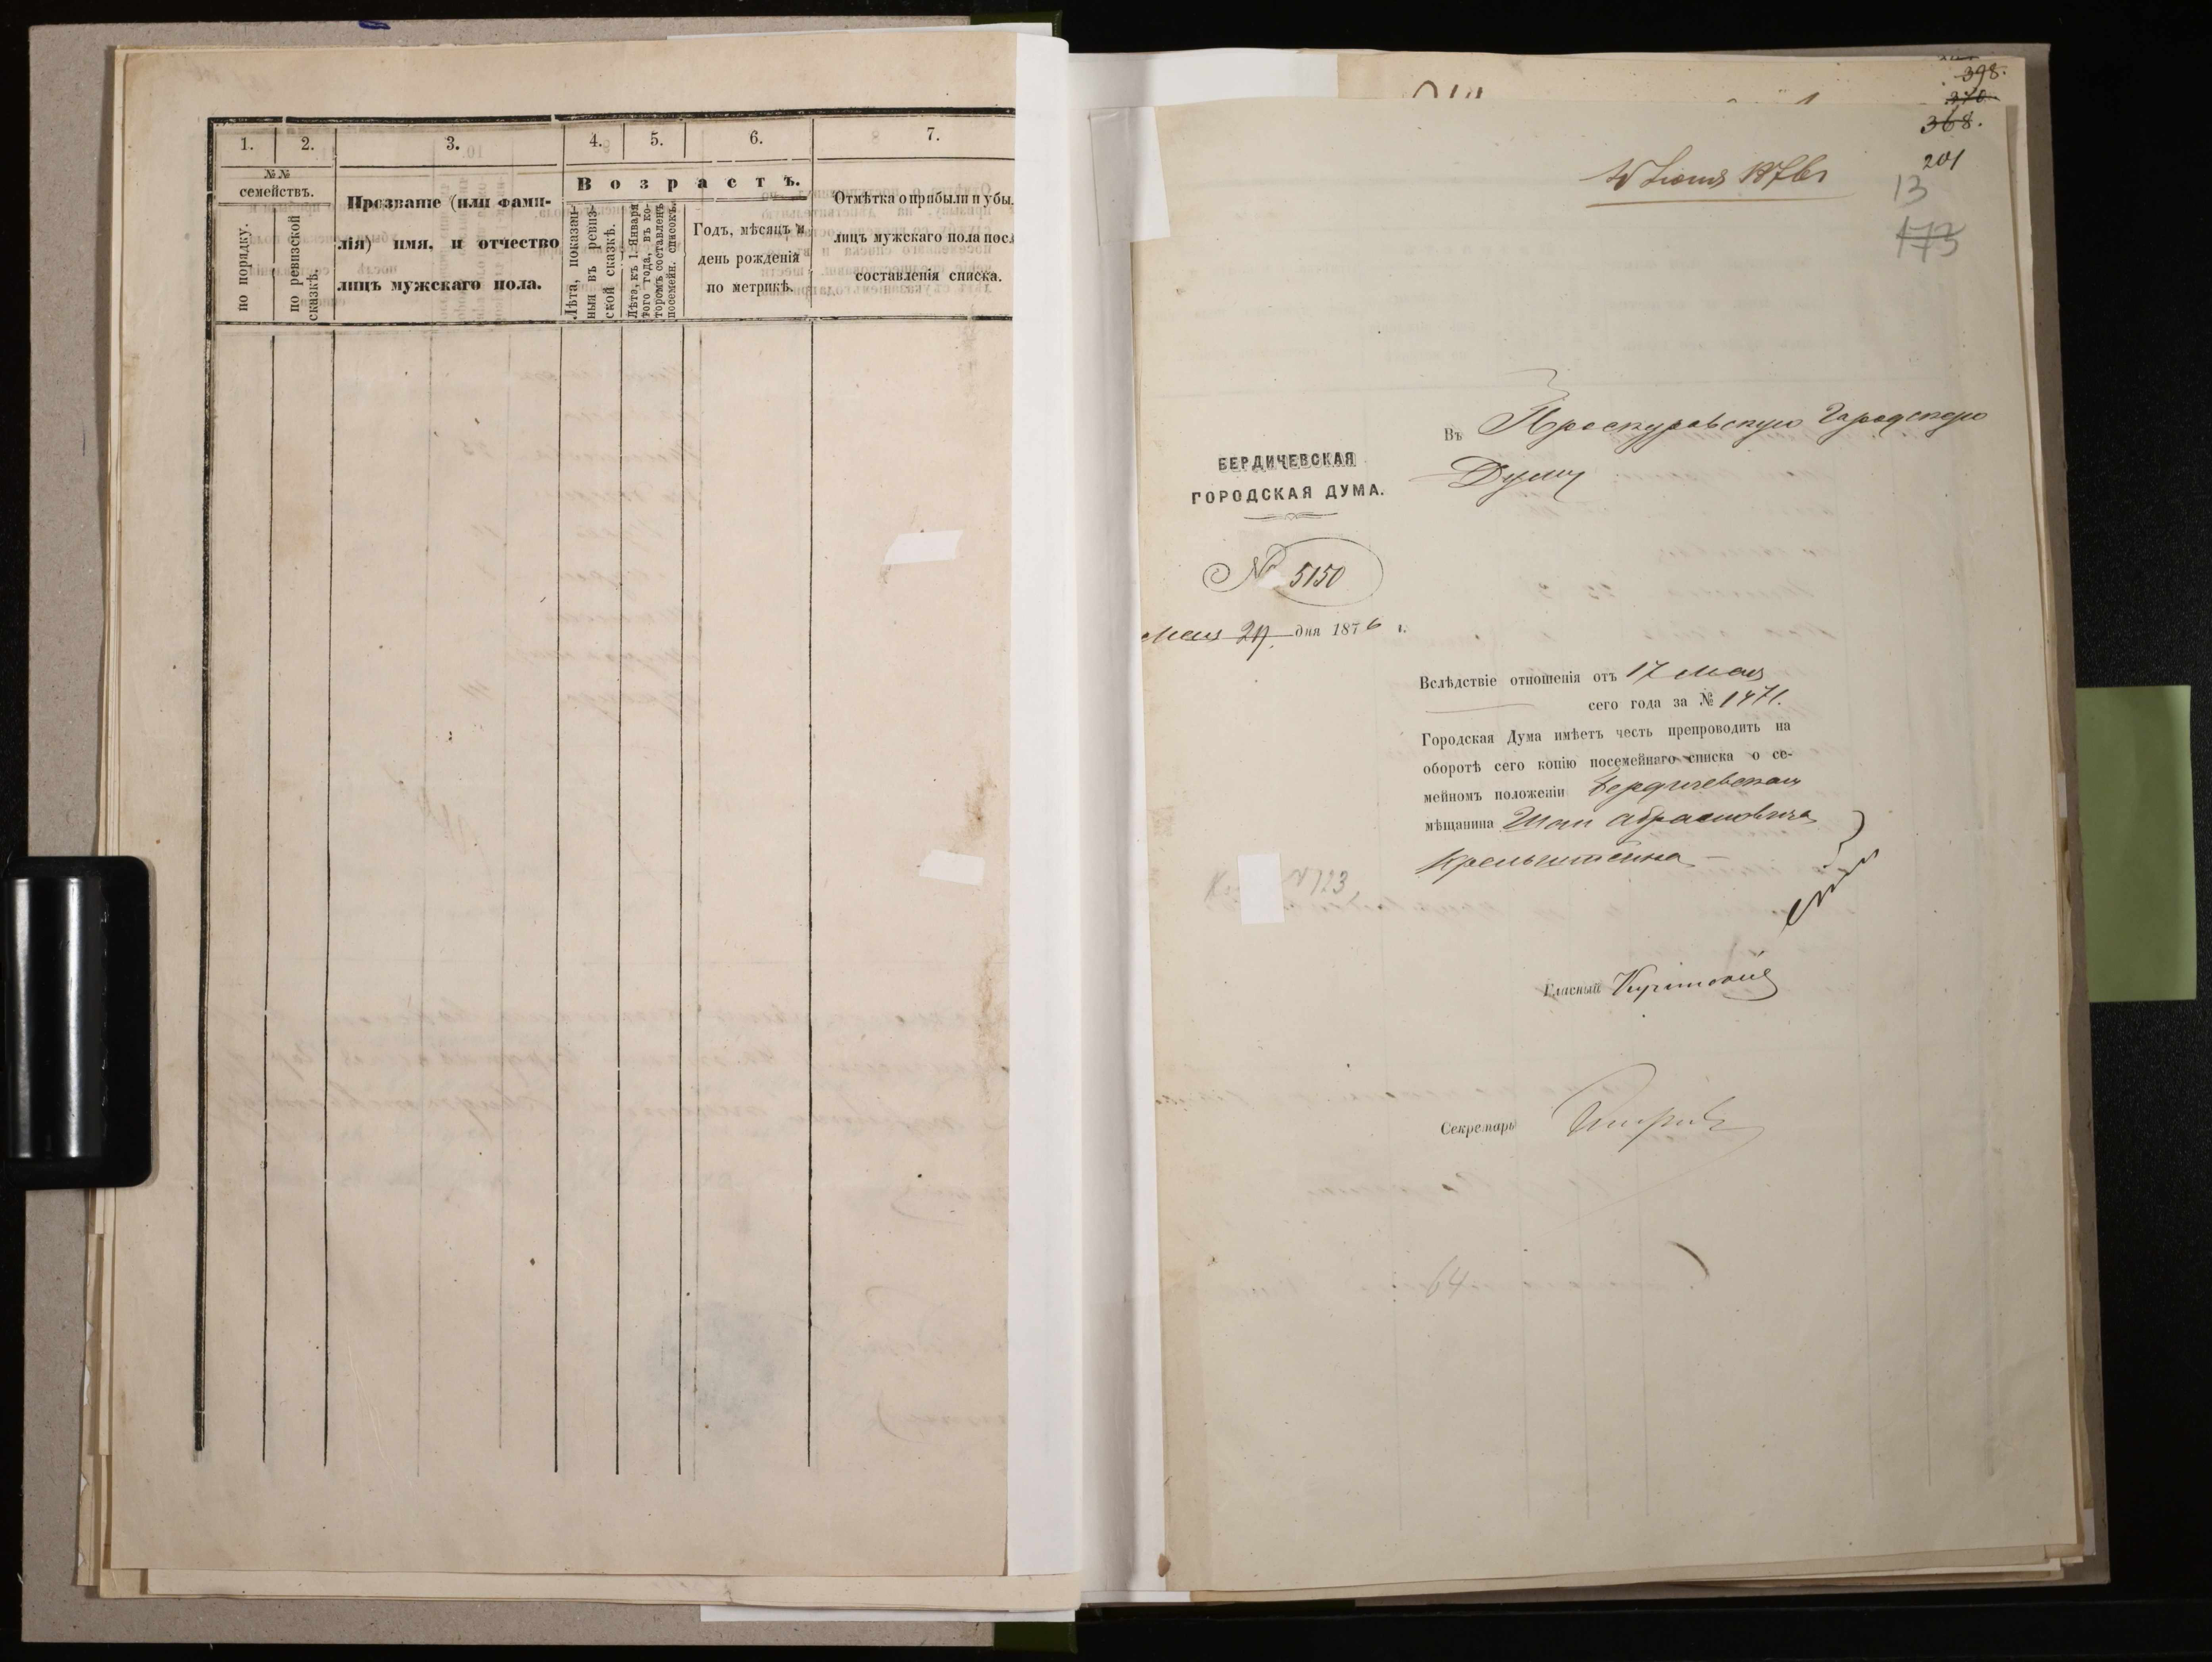 1. 2. 3. 4. 5. 6. 7.
№№ семействъ.
по порядку.
по ревизской сказкѣ.
Прозваніе (или фами-
лія) имя, и отчество
лицъ мужскаго пола.
Возрастъ.
Лѣта, показан-
ныя въ ревиз-
ской сказкѣ.
Лѣта, къ 1 Января
того года, въ ко-
торомъ составленъ
посемейн. списокъ.
Годъ, мѣсяцъ и
день рожденія
по метрикѣ.
Отмѣтка о прибыли и убы
лицъ мужскаго пола посл
составленія списка.
398.
370
368.
201
13
173
Іюня 1876
Въ Проскуровскую Городскую
Думу
БЕРДИЧЕВСКАЯ
ГОРОДСКАЯ ДУМА.
№ 5150
Мая 29 дня 1876 г.
Вслѣдствіе отношенія отъ 17 Мая
сего года за № 1471.
Городская Дума имѣетъ честь препроводить на
оборотѣ сего копію посемейнаго списка о се-
мейномъ положеніи Бердичевскаго
мѣщанина Абрамовича
Крельштейна
№ 123
Гласный
Секретарь